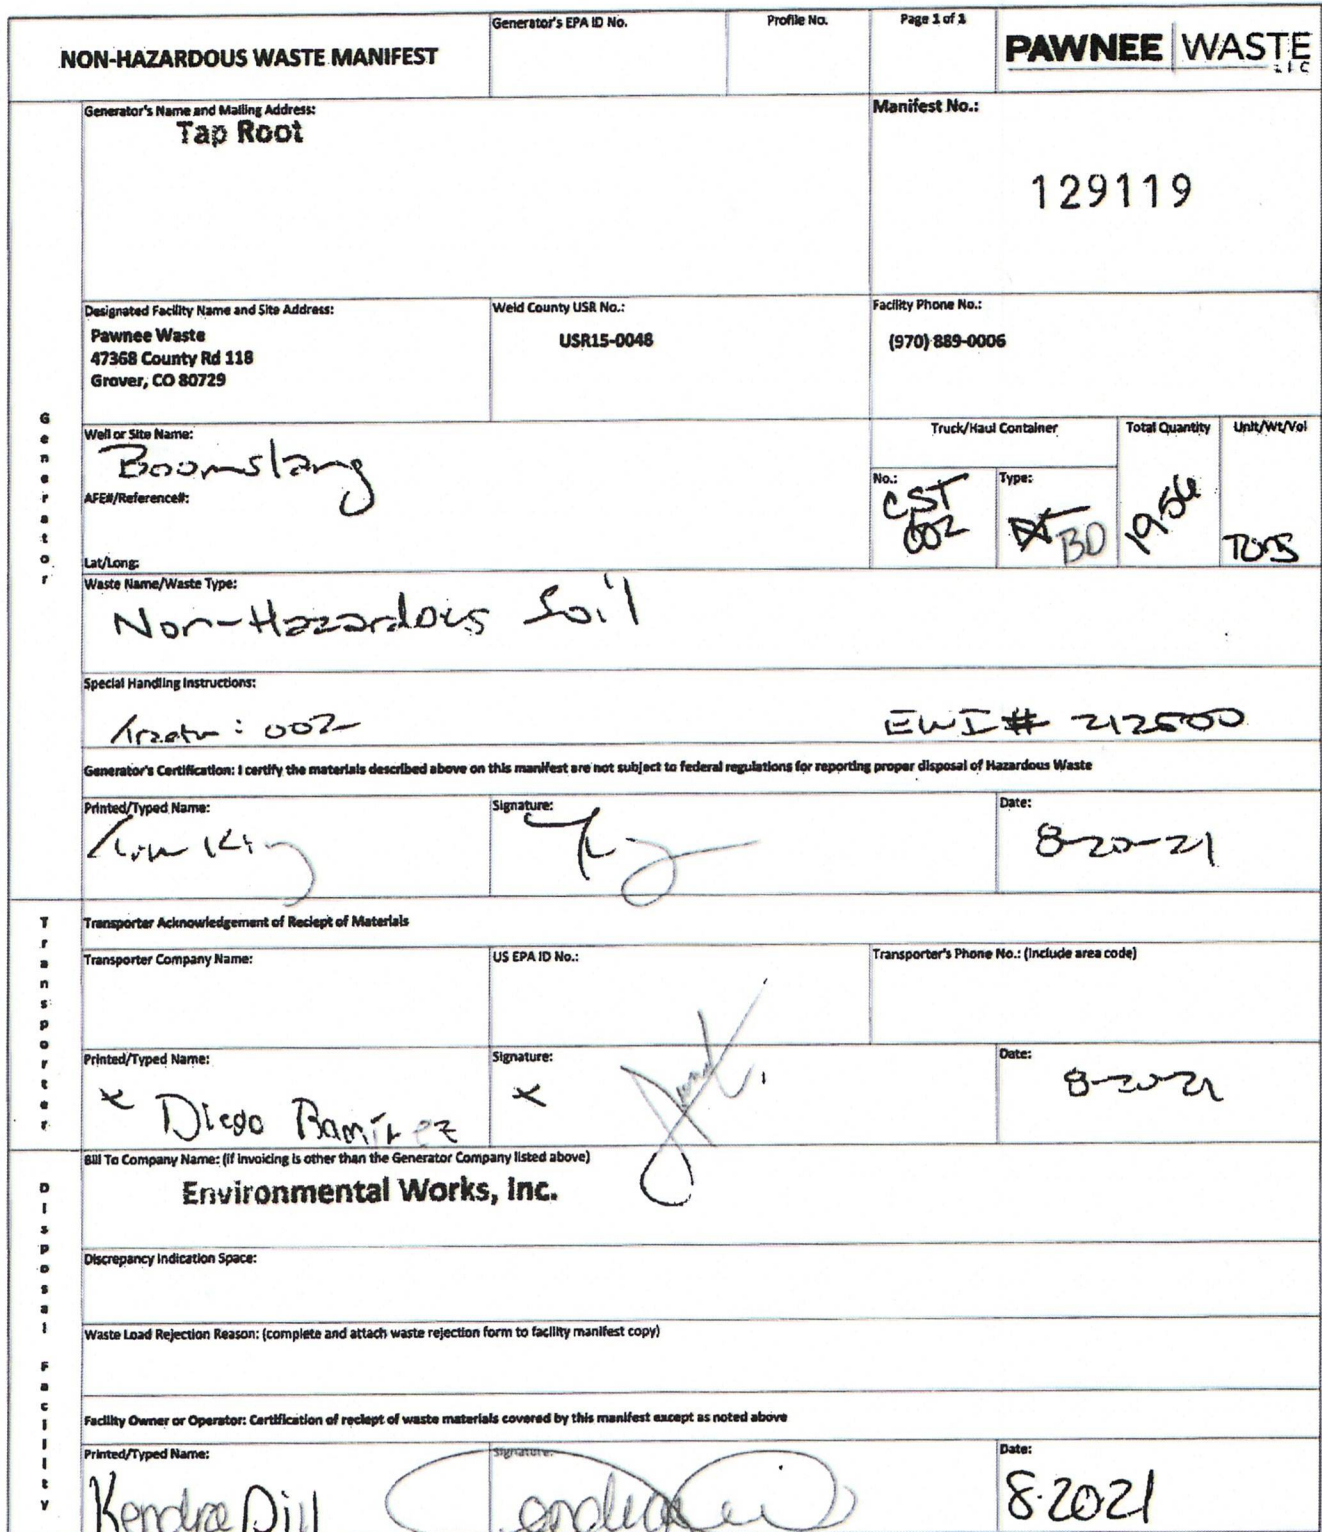 NON-HAZARDOUS WASTE MANIFEST
Generator's EPA ID No.
Profile No.
Page 1 of 1
PAWNEE WASTE LLC
Generator's Name and Mailing Address:
Tap Root
Manifest No.:
129119
Designated Facility Name and Site Address:
Pawnee Waste
47368 County Rd 118
Grover, CO 80729
Weld County USR No.:
USR15-0048
Facility Phone No.:
(970) 889-0006
Generator
Well or Site Name:
Boomslang
AFE#/Reference#:
Lat/Long:
Truck/Haul Container
No.:
CST
002
Type:
BD
Total Quantity
19.56
Unit/Wt/Vol
Tons
Waste Name/Waste Type:
Non-Hazardous Soil
Special Handling Instructions:
: 002
EWI# 212500
Generator's Certification: I certify the materials described above on this manifest are not subject to federal regulations for reporting proper disposal of Hazardous Waste
Printed/Typed Name:
King
Signature:
Date:
8-20-21
Transporter
Transporter Acknowledgement of Reciept of Materials
Transporter Company Name:
US EPA ID No.:
Transporter's Phone No.: (include area code)
Printed/Typed Name:
x Diego Ramírez
Signature:
x
Date:
8-20-21
Disposal Facility
Bill To Company Name: (if invoicing is other than the Generator Company listed above)
Environmental Works, Inc.
Discrepancy Indication Space:
Waste Load Rejection Reason: (complete and attach waste rejection form to facility manifest copy)
Facility Owner or Operator: Certification of reciept of waste materials covered by this manifest except as noted above
Printed/Typed Name:
Kendra Dill
Signature:
Date:
8.2021